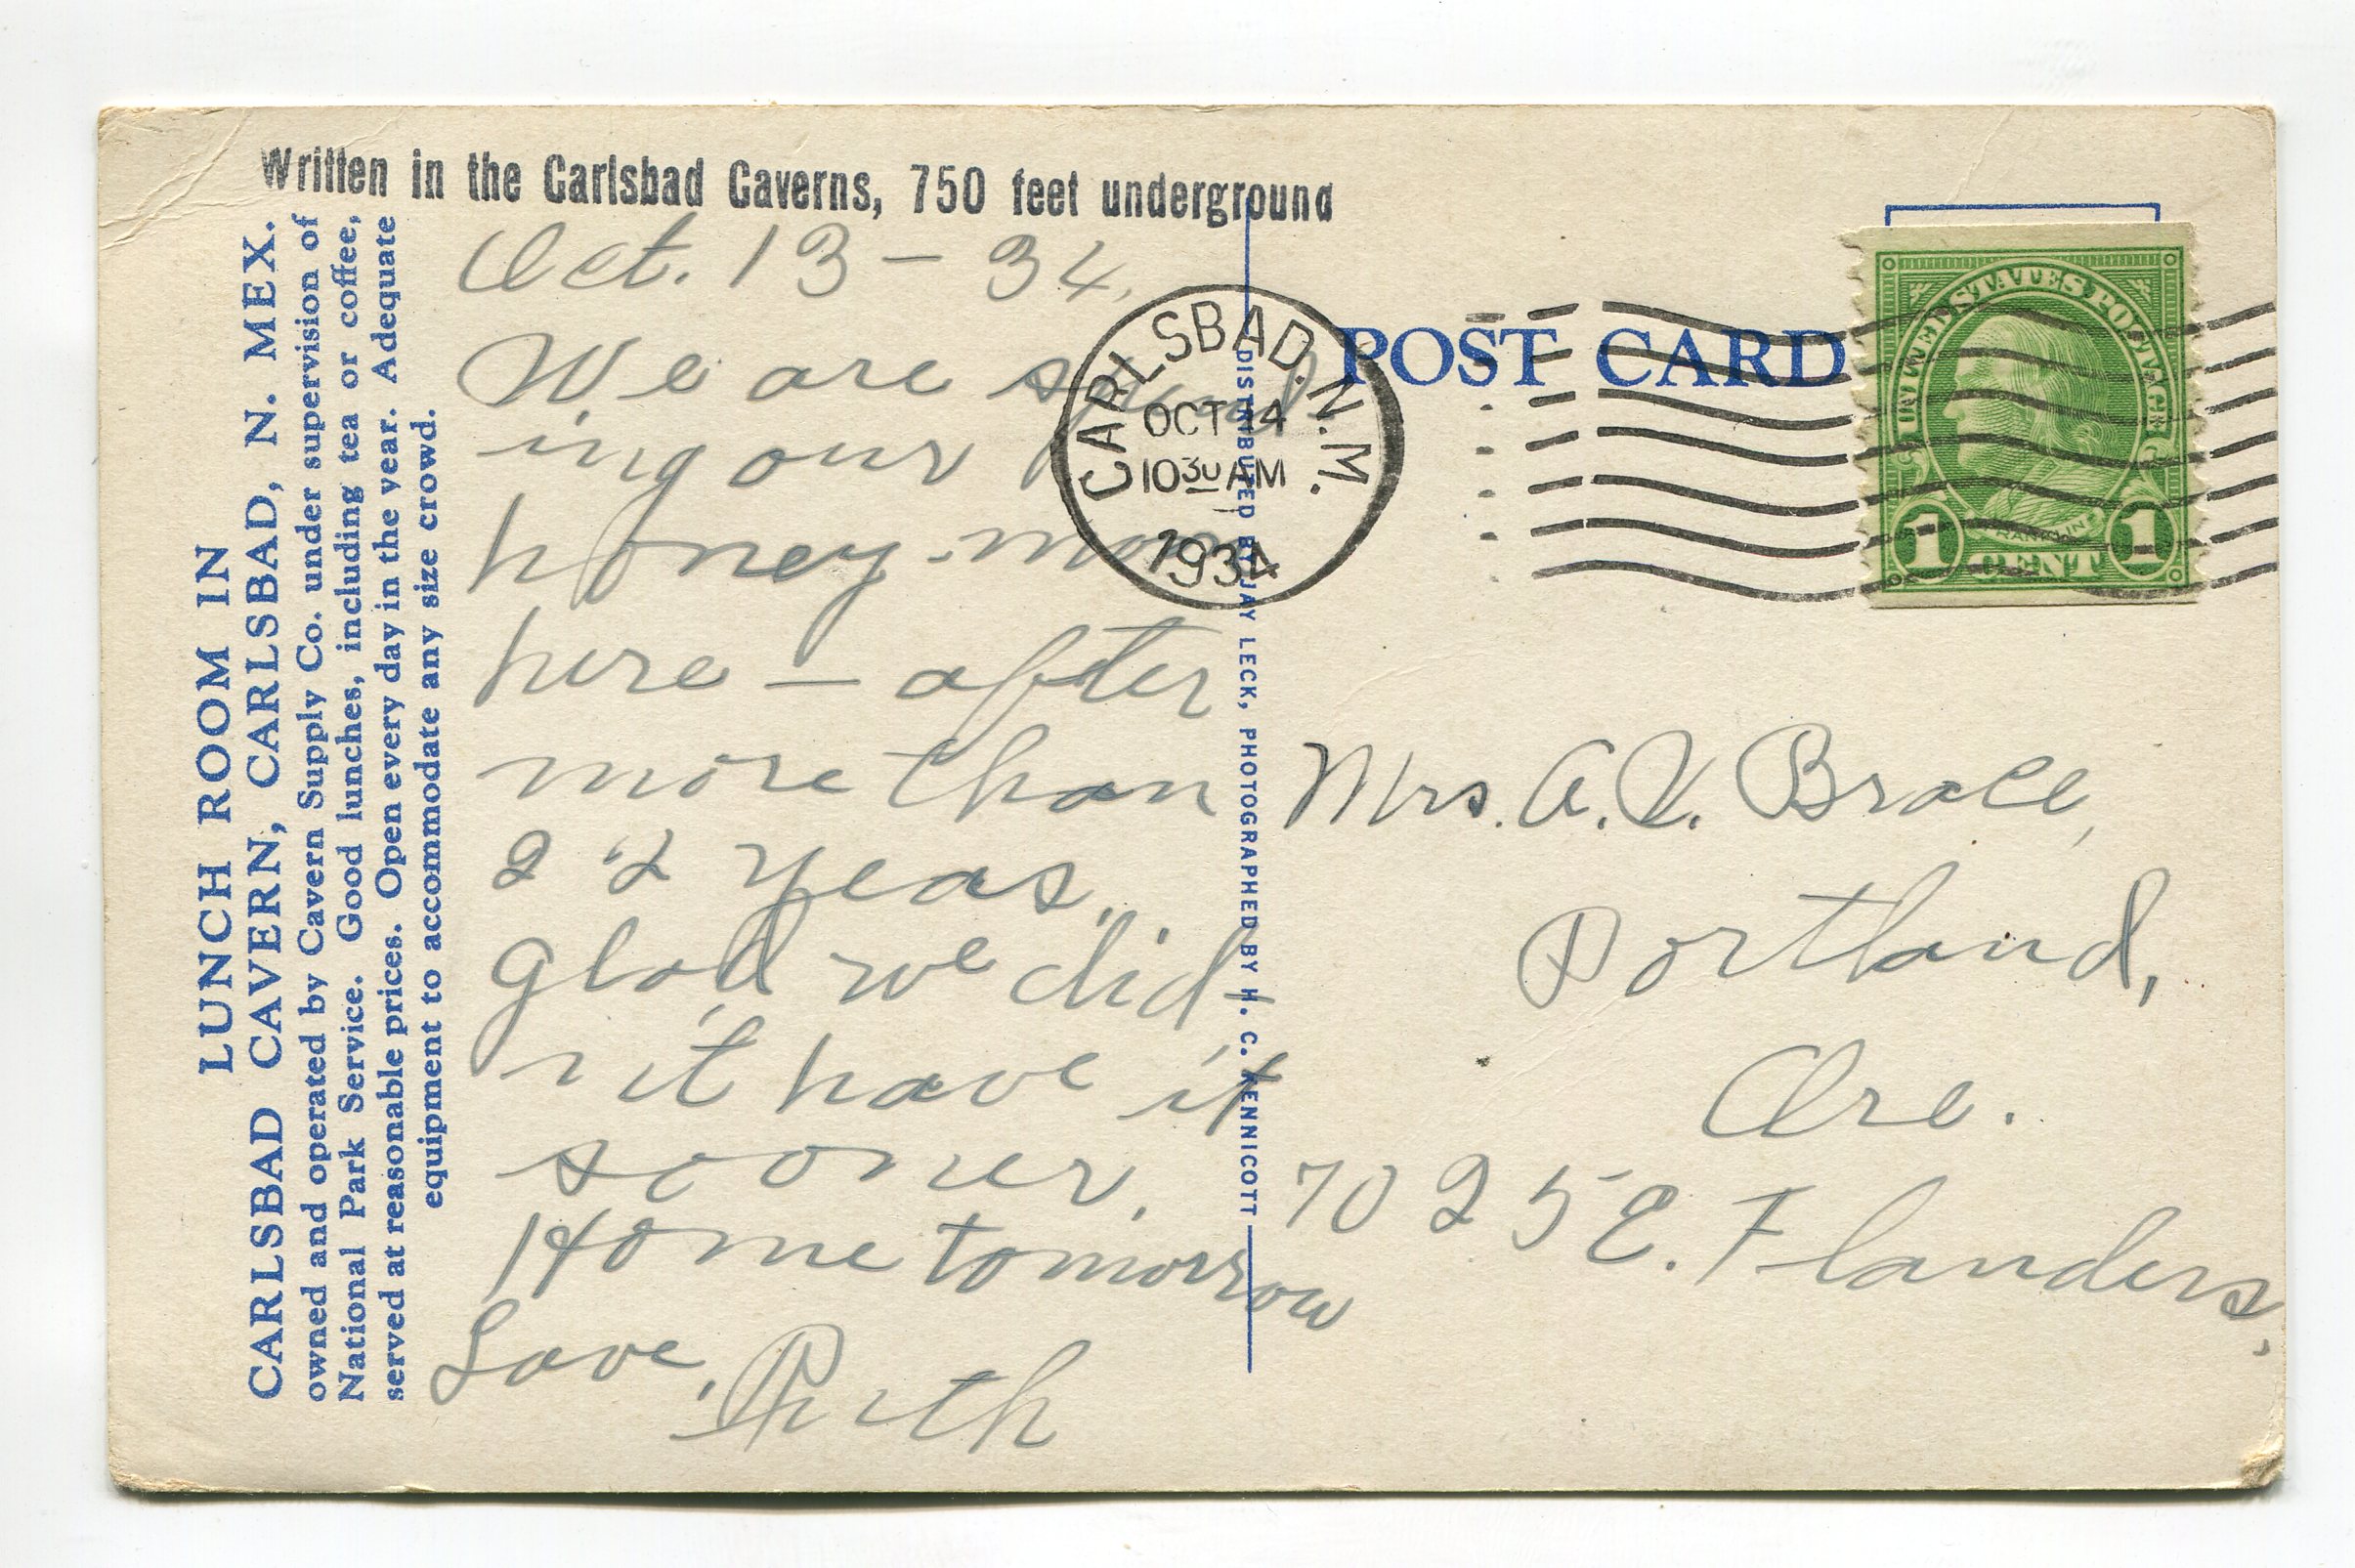 Written in the Carlsbad Caverns, 750 feet underground
LUNCH ROOM IN
CARLSBAD CAVERN, CARLSBAD, N. MEX.
owned and operated by Cavern Supply Co. under supervision of
National Park Service. Good lunches, including tea or coffee,
served at reasonable prices. Open every day in the year. Adequate
equipment to accommodate any size crowd.
Oct. 13 - 34.
We are spend
ing our
honey-moon
here - after
more than
22 yeas.
glad we did-
n't have it
sooner.
Home tomorrow
Love,
Ruth
DISTRIBUTED BY JAY LECK, PHOTOGRAPHED BY H. C. KENNICOTT
CARLSBAD. N.M.
OCT 14
10 30 AM
1934
POST CARD
UNITED STATES POSTAGE
FRANKLIN
1 CENT 1
Mrs. A. V. Brace,
Portland,
Ore.
7025 E. Flanders.